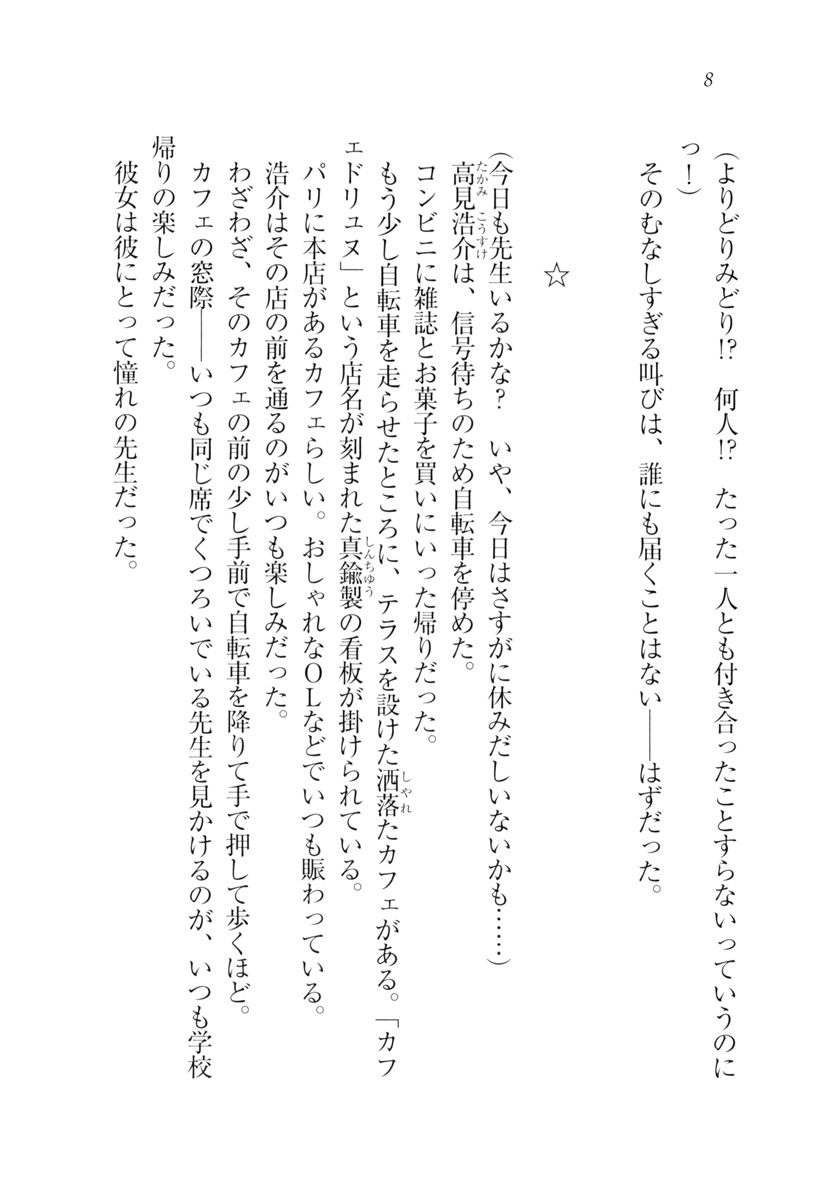 8
(よりどりみどり!?　何人!?　たった一人とも付き合ったことすらないっていうのに
っ！)
そのむなしすぎる叫びは、誰にも届くことはない——はずだった。
☆
(今日も先生いるかな？　いや、今日はさすがに休みだしいないかも……)
たかみ　こうすけ
高見浩介は、信号待ちのため自転車を停めた。
コンビニに雑誌とお菓子を買いにいった帰りだった。
もう少し自転車を走らせたところに、テラスを設けた洒落たカフェがある。「カフ
しゃれ
ェドリュヌ」という店名が刻まれた真鍮製の看板が掛けられている。
しんちゆう
パリに本店があるカフェらしい。おしゃれなOLなどでいつも賑わっている。
浩介はその店の前を通るのがいつも楽しみだった。
わざわざ、そのカフェの前の少し手前で自転車を降りて手で押して歩くほど。
カフェの窓際——いつも同じ席でくつろいでいる先生を見かけるのが、いつも学校
帰りの楽しみだった。
彼女は彼にとって憧れの先生だった。